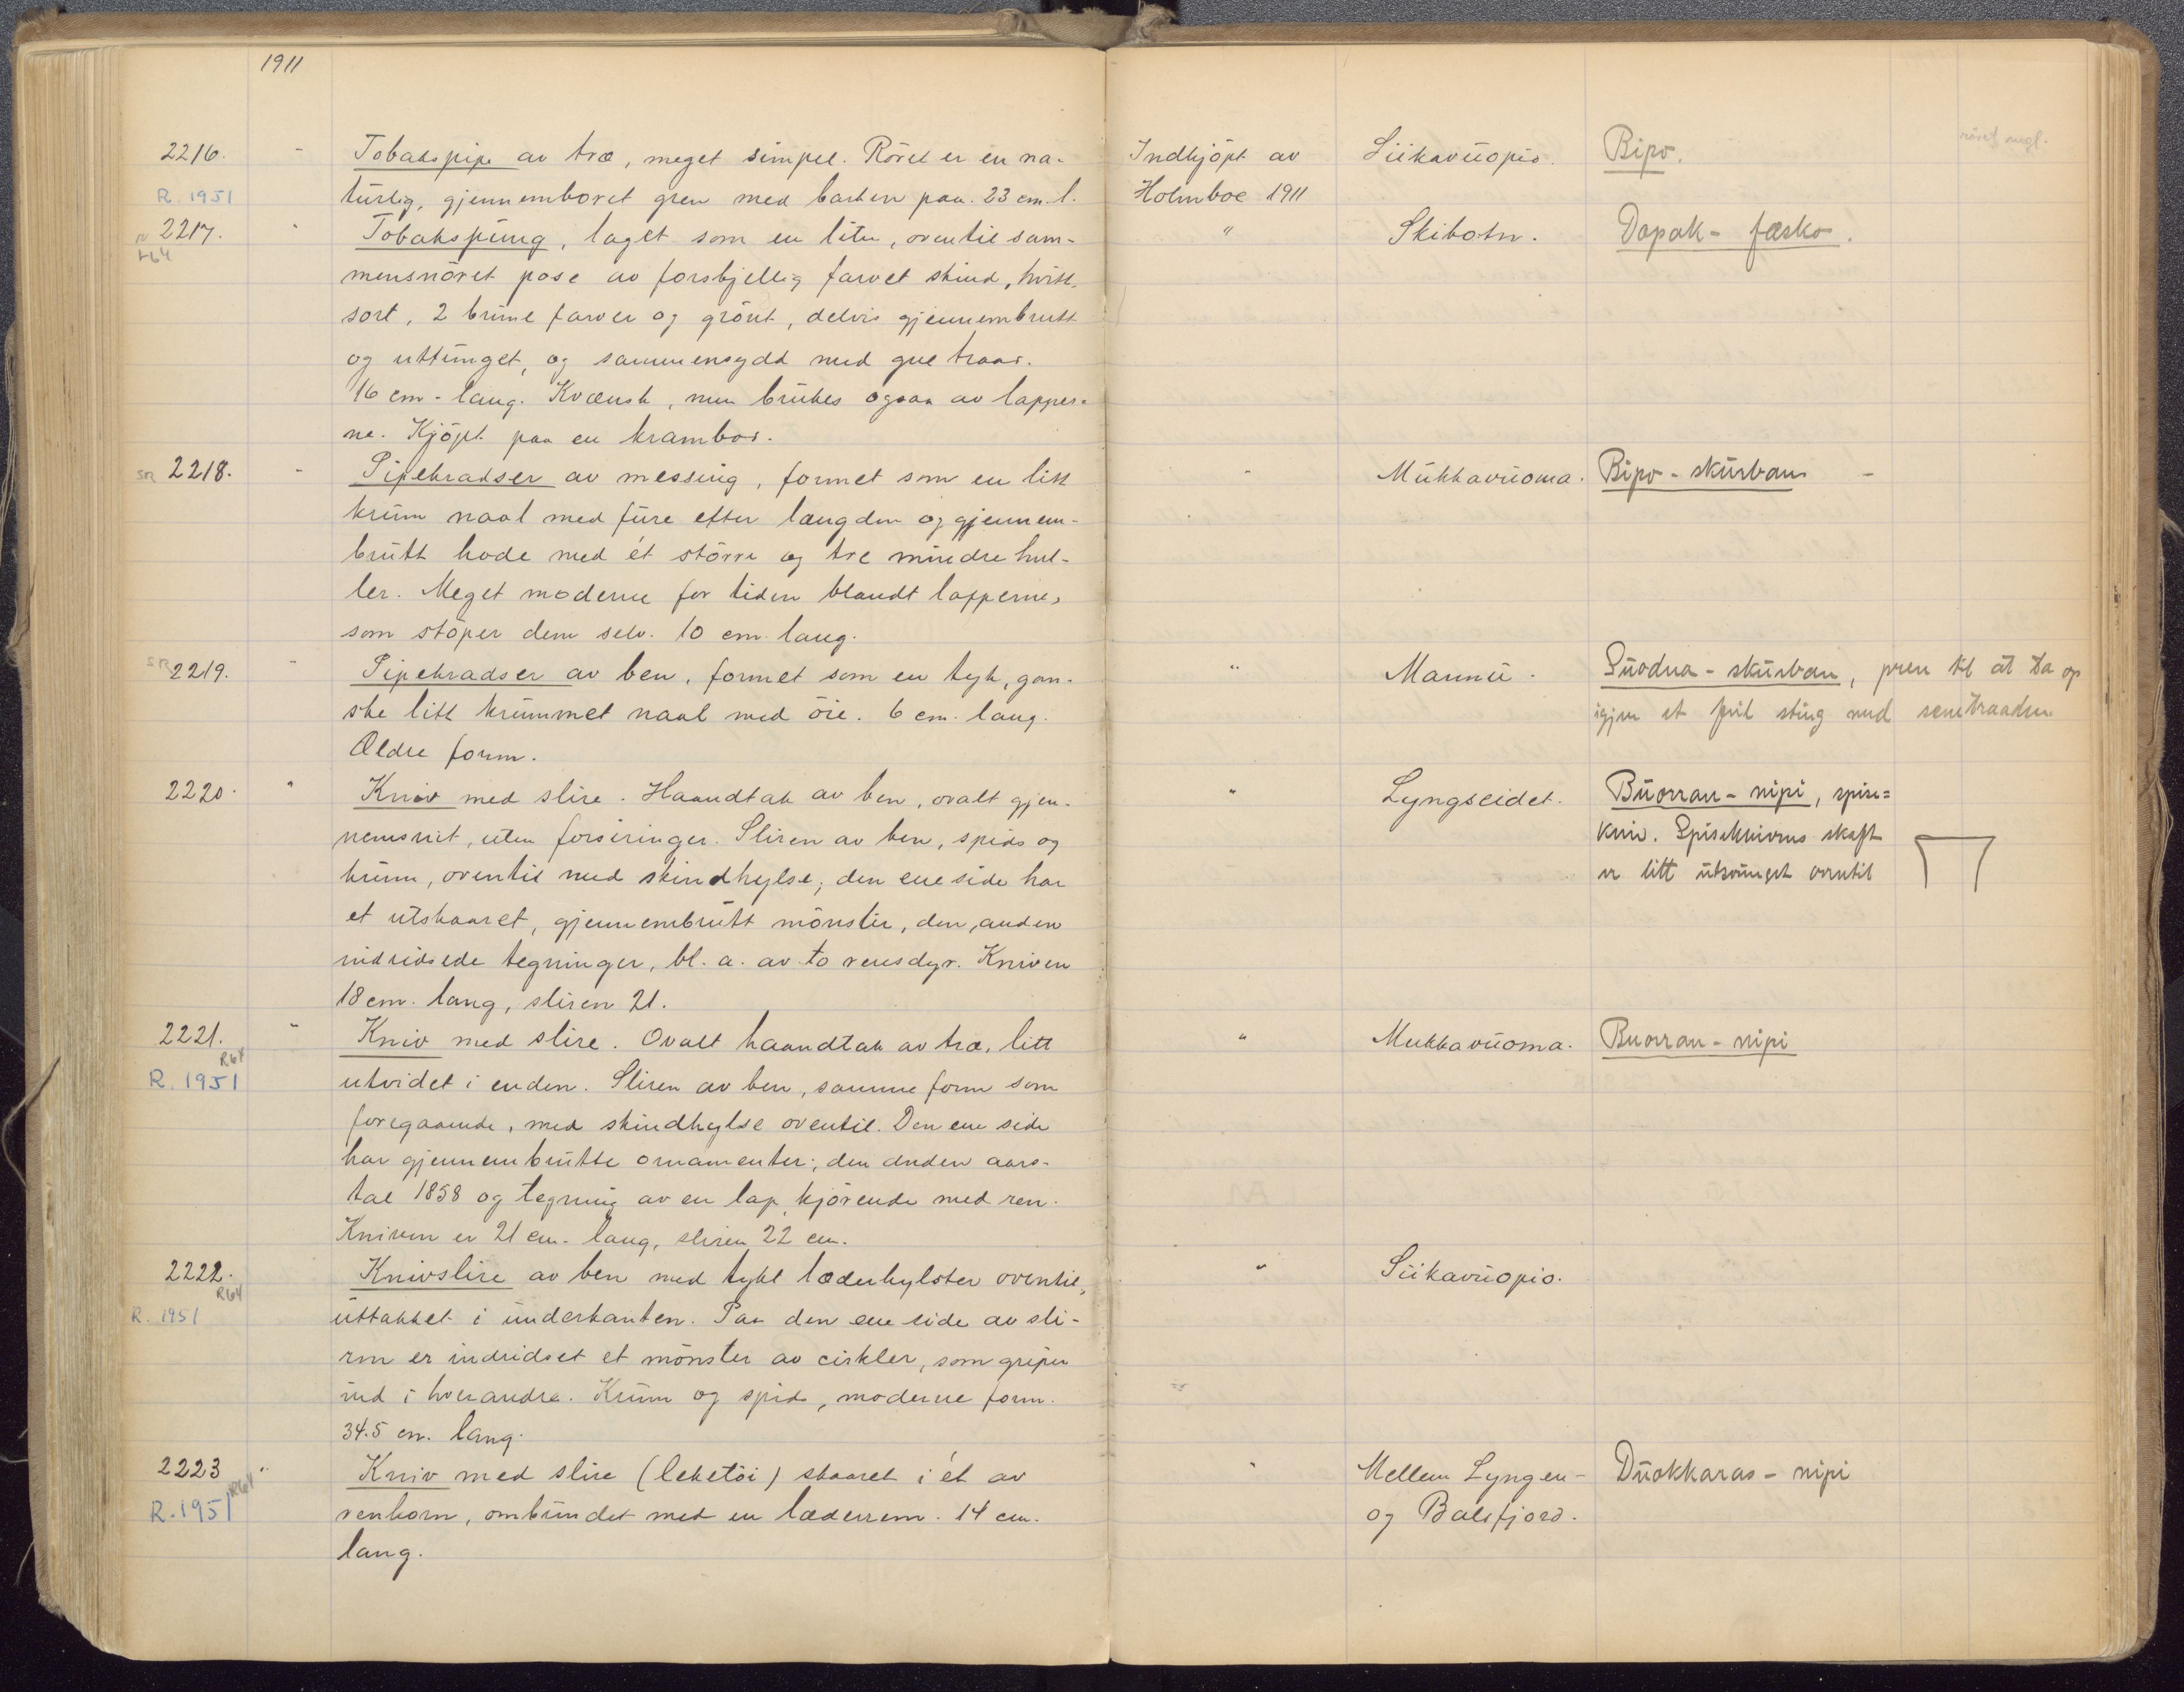 1911
2216. - Tobakspipe av træ, meget simpel. Röret er en na- Indkjöpt av Siikavuopio. Bipo. röret mgl.
R. 1951 turlig, gjennemboret gren med barken paa. 23 cm. l. Holmboe 1911
2217. " Tobakspung, laget som en liten, oventil sam- " Skibotn. Dopak - fæsko.
R64 mensnöret pose av forskjellig farvet skind, hvitt,
sort, 2 brune farver og grönt, delvis gjennembrutt
og uttunget, og sammensydd med gul traad.
16 cm. lang. Kvænsk, men brukes ogsaa av lapper-
ne. Kjöpt paa en krambod.
SR 2218. - Pipekradser av messing, formet som en litt " Mukkavuoma. Bipo - skurban -
krum naal med fure efter længden og gjennem-
brutt hode med ét större og tre mindre hul-
ler. Meget moderne for tiden blandt lapperne,
som stöper dem selv. 10 cm. lang.
SR 2219. " Pipekradser av ben, formet som en tyk, gan- " Mannu. Suodna - skurban, pren til at ta op
ske litt krummet naal med öie. 6 cm. lang. igjen et feil sting med senetraaden
Ældre form.
2220. " Kniv med slire. Haandtak av ben, ovalt gjen- " Lyngseidet. Buorran - nipi, spise=
nemsnit, uten forsiringer. Sliren av ben, spids og kniv. Spiseknivens skaft
krum, oventil med skindhylse; den ene side har er litt utsvunget oventil
et utskaaret, gjennembrutt mönster, den anden
indridsede tegninger, bl. a. av to rensdyr. Kniven
18 cm. lang, sliren 21.
2221. " Kniv med slire. Ovalt haandtak av træ, litt " Mukkavuoma. Buorran - nipi
R64
R. 1951 utvidet i enden. Sliren av ben, samme form som
foregaaende, med skindhylse oventil. Den ene side
har gjennembrutte ornamenter; den anden aars-
tal 1858 og tegning av en lap kjörende med ren.
Kniven er 21 cm. lang, sliren 22 cm.
2222. Knivslire av ben med tykt læderhylster oventil, " Siikavuopio.
R64
R. 1951 uttakket i underkanten. Paa den ene side av sli-
ren er indridset et mönster av cirkler, som griper
ind i hverandre. Krum og spids, moderne form.
34.5 cm. lang.
2223 " Kniv med slire (leketöi) skaaret i ét av " Mellem Lyngen - Duokkaras - nipi
R. 1951 R64 renhorn, ombundet med en læderrem. 14 cm. og Balsfjord.
lang.